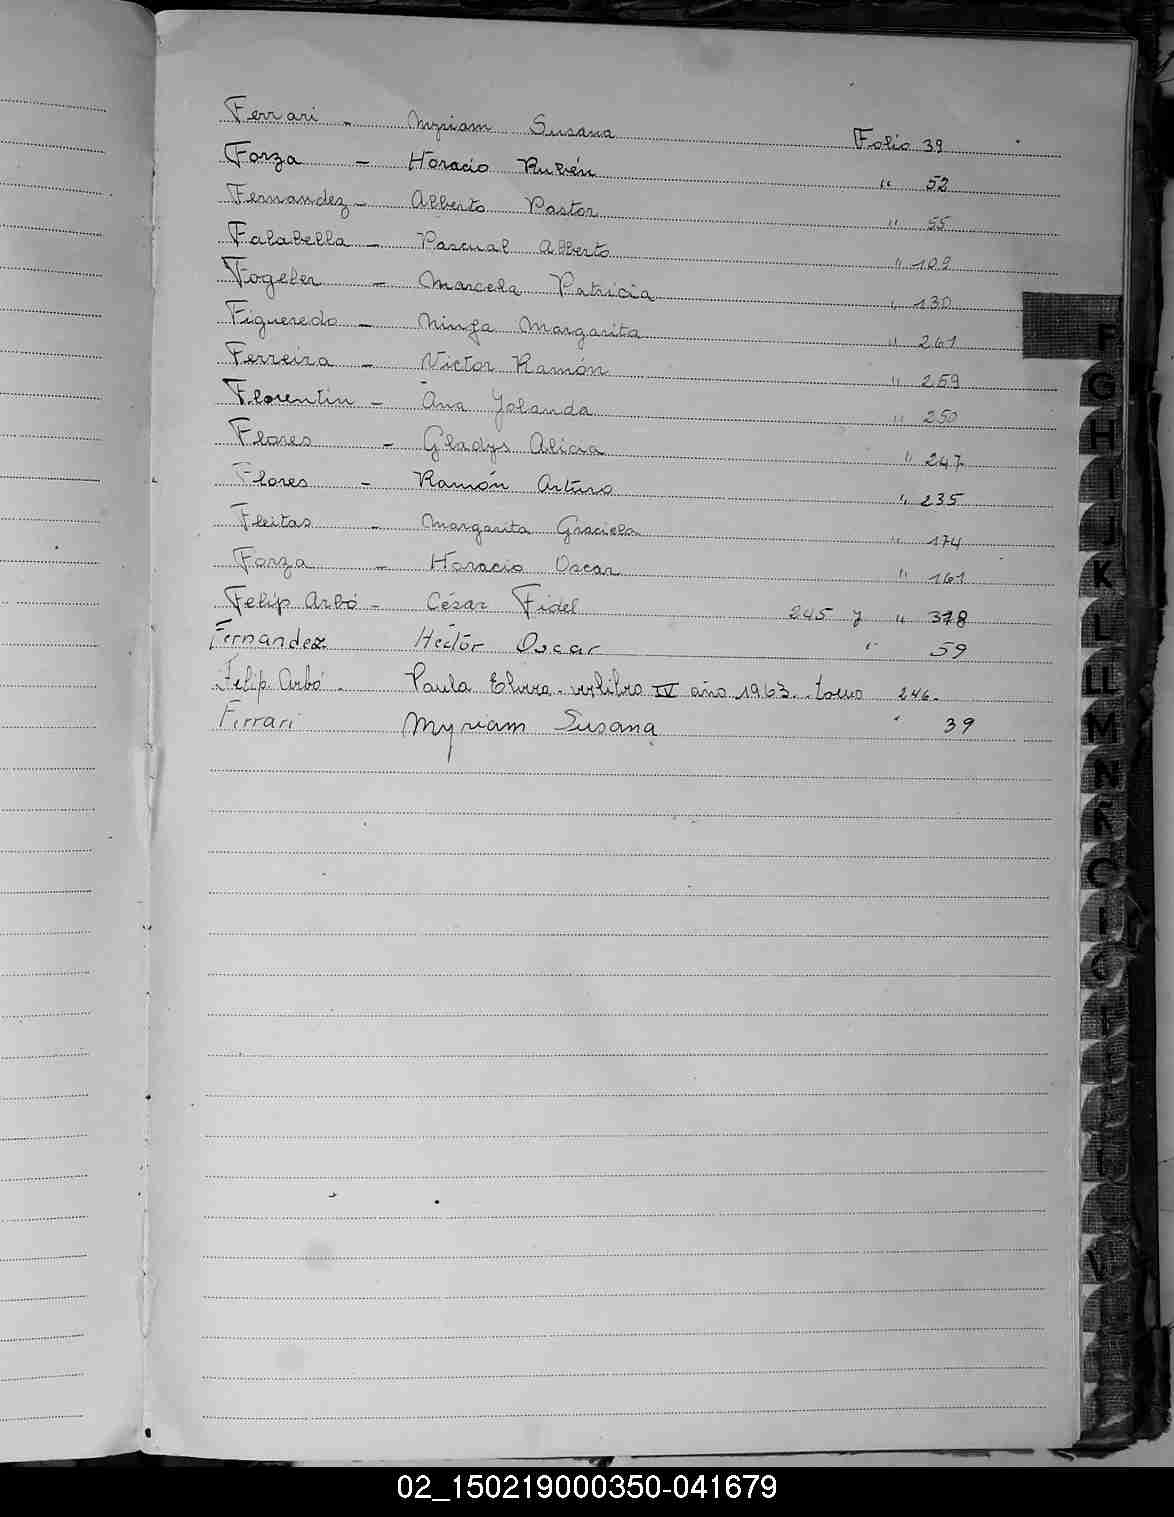 Ferrari - Myriam Susana Folio 39
Forza - Horacio Rubén " 52
Fernandez - Alberto Pastor " 55
Falabella - Pascual Alberto " 109
Fogeler - Marcela Patricia " 130
Figueredo - Ninfa Margarita " 261
Ferreira - Victor Ramón " 259
Florentin - Ana Yolanda " 250
Flores - Gladys Alicia " 247
Flores - Ramón Arturo " 235
Fleitas - Margarita Graciela " 174
Forza - Horacio Oscar " 161
Felip Arbó - César Fidel 245 y " 378
Fernandez Hector Oscar " 59
Felip Arbó - Paula Elvira - libro IV año 1963 - tomo 246.
Ferrari Myriam Susana " 39
F
G
H
I
J
K
L
LL
M
N
Ñ
O
02_150219000350-041679